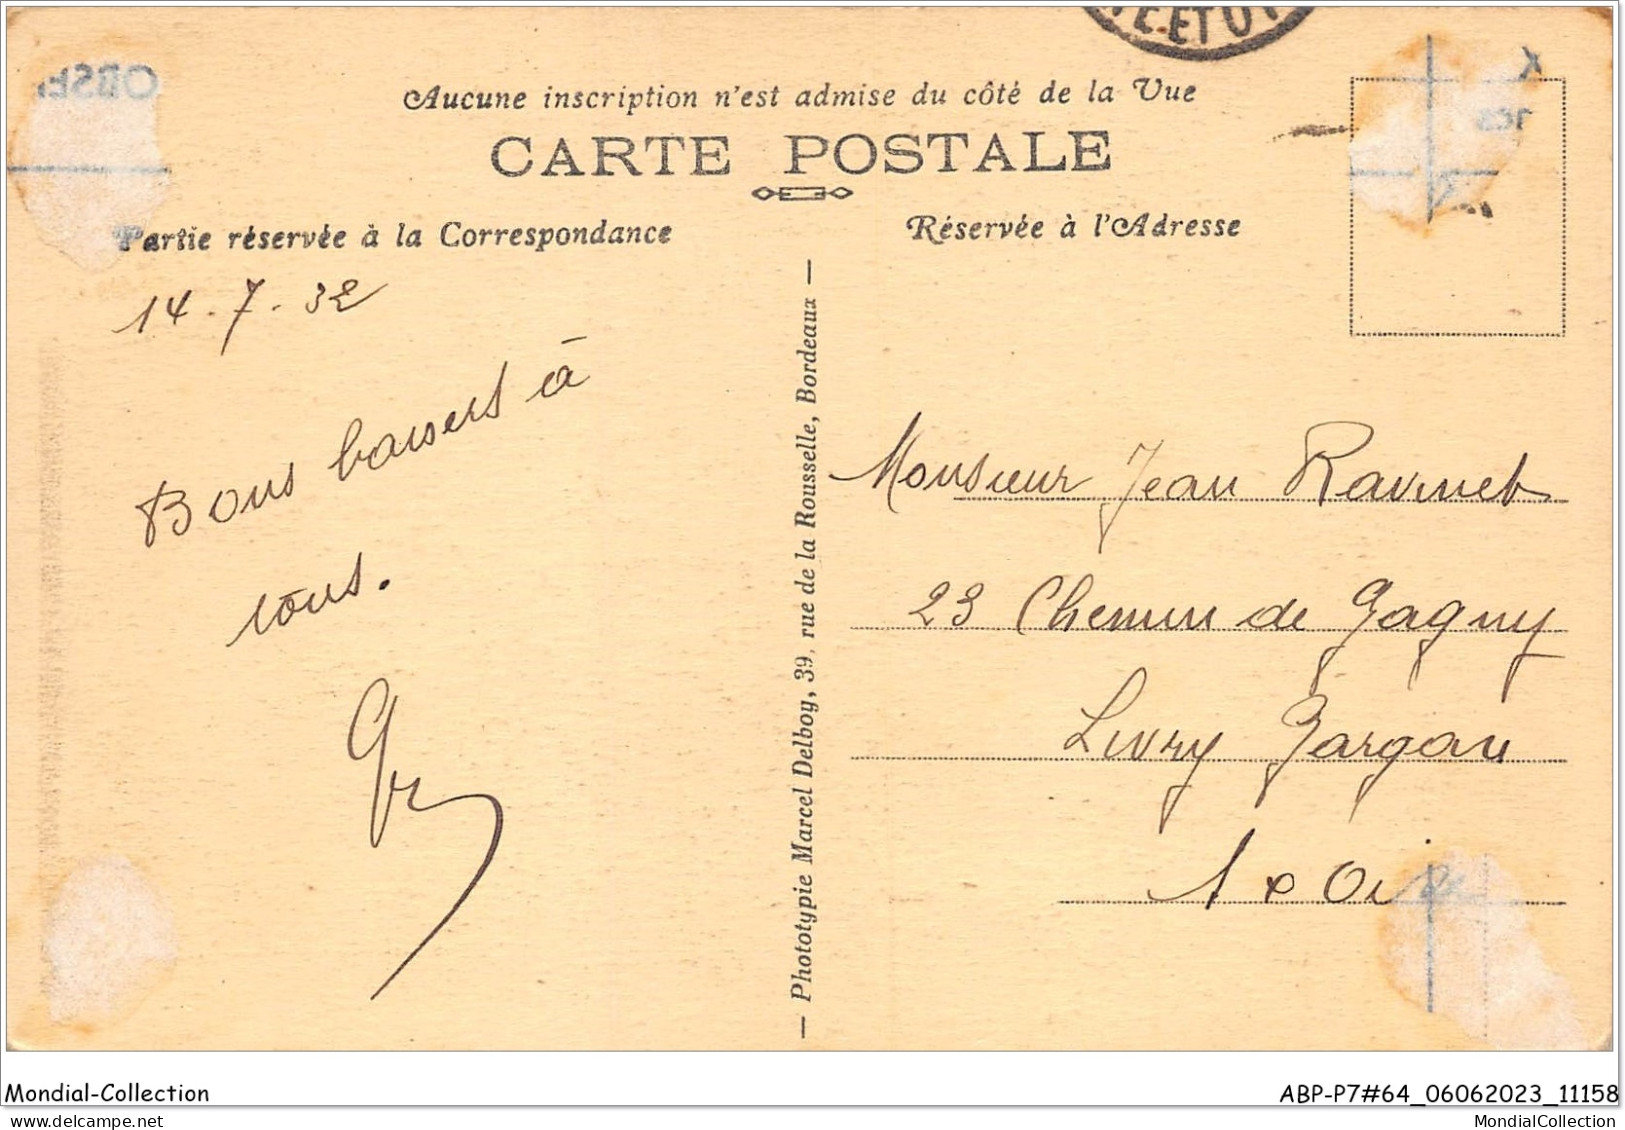 Aucune inscription n'est admise du côté de la Vue
CARTE POSTALE
Partie réservée à la Correspondance
Réservée à l'Adresse
14.7.32
Bons baisers à
tous.
— Phototypie Marcel Delboy, 39, rue de la Rousselle, Bordeaux —
Monsieur Jean Ravinet
23 Chemin de Gagny
Livry Gargan
Mondial-Collection
ABP-P7#64_06062023_11158
Mondial-Collection.net
MondialCollection